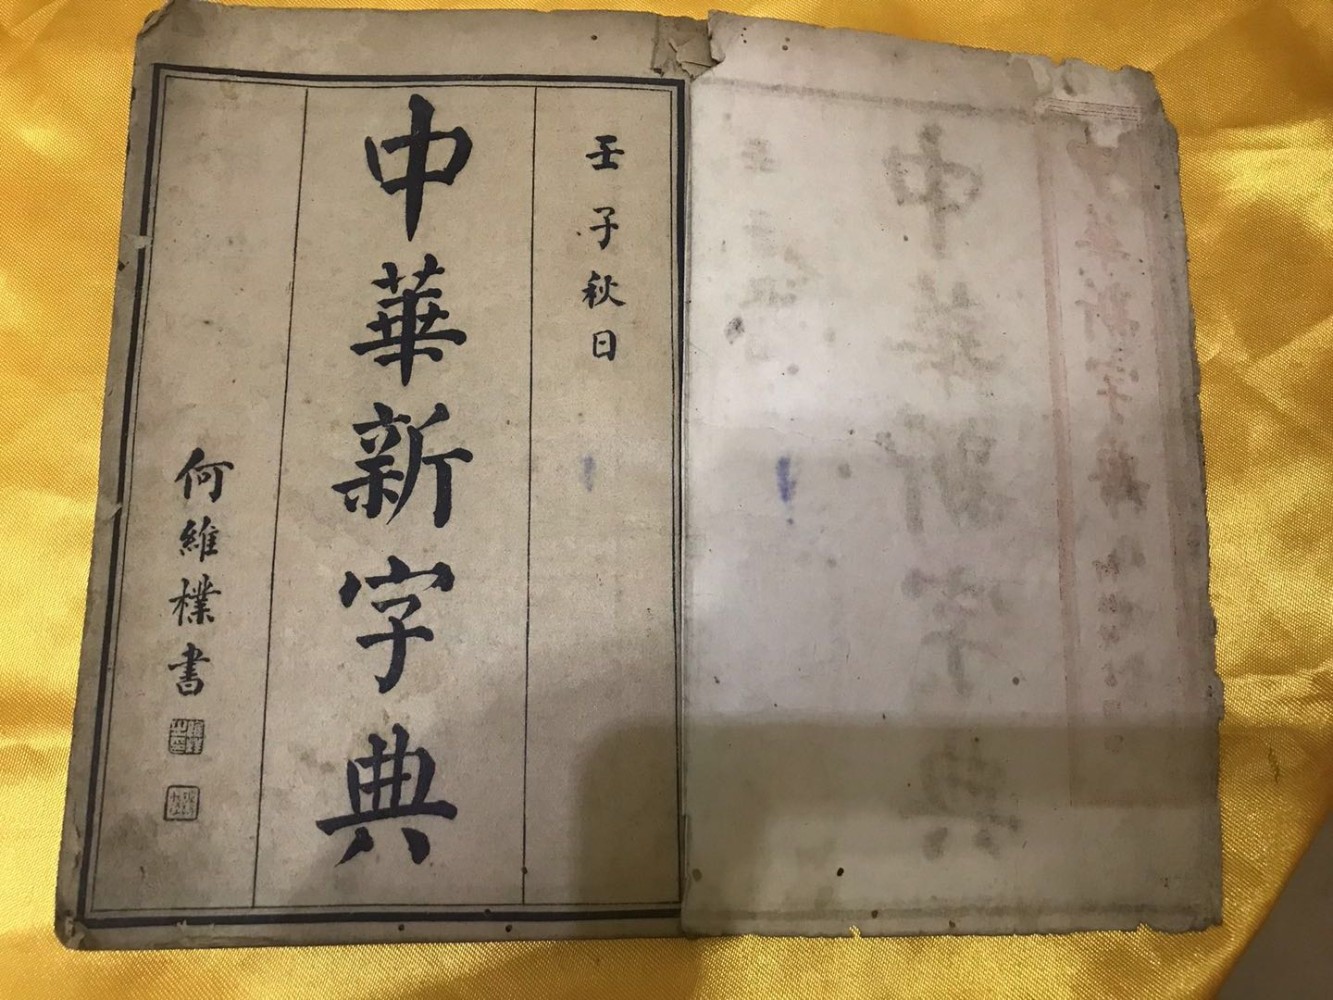 壬子秋日
中華新字典
何維樸書